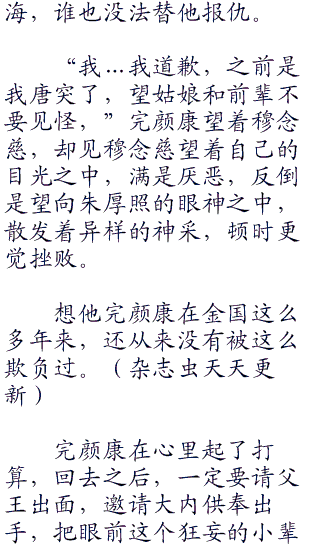 海，谁也没法替他报仇。
“我…我道歉，之前是
我唐突了，望姑娘和前辈不
要见怪，”完颜康望着穆念
慈，却见穆念慈望着自己的
目光之中，满是厌恶，反倒
是望向朱厚照的眼神之中，
散发着异样的神采，顿时更
觉挫败。
想他完颜康在金国这么
多年来，还从来没有被这么
欺负过。（杂志虫天天更
新）
完颜康在心里起了打
算，回去之后，一定要请父
王出面，邀请大内供奉出
手，把眼前这个狂妄的小辈